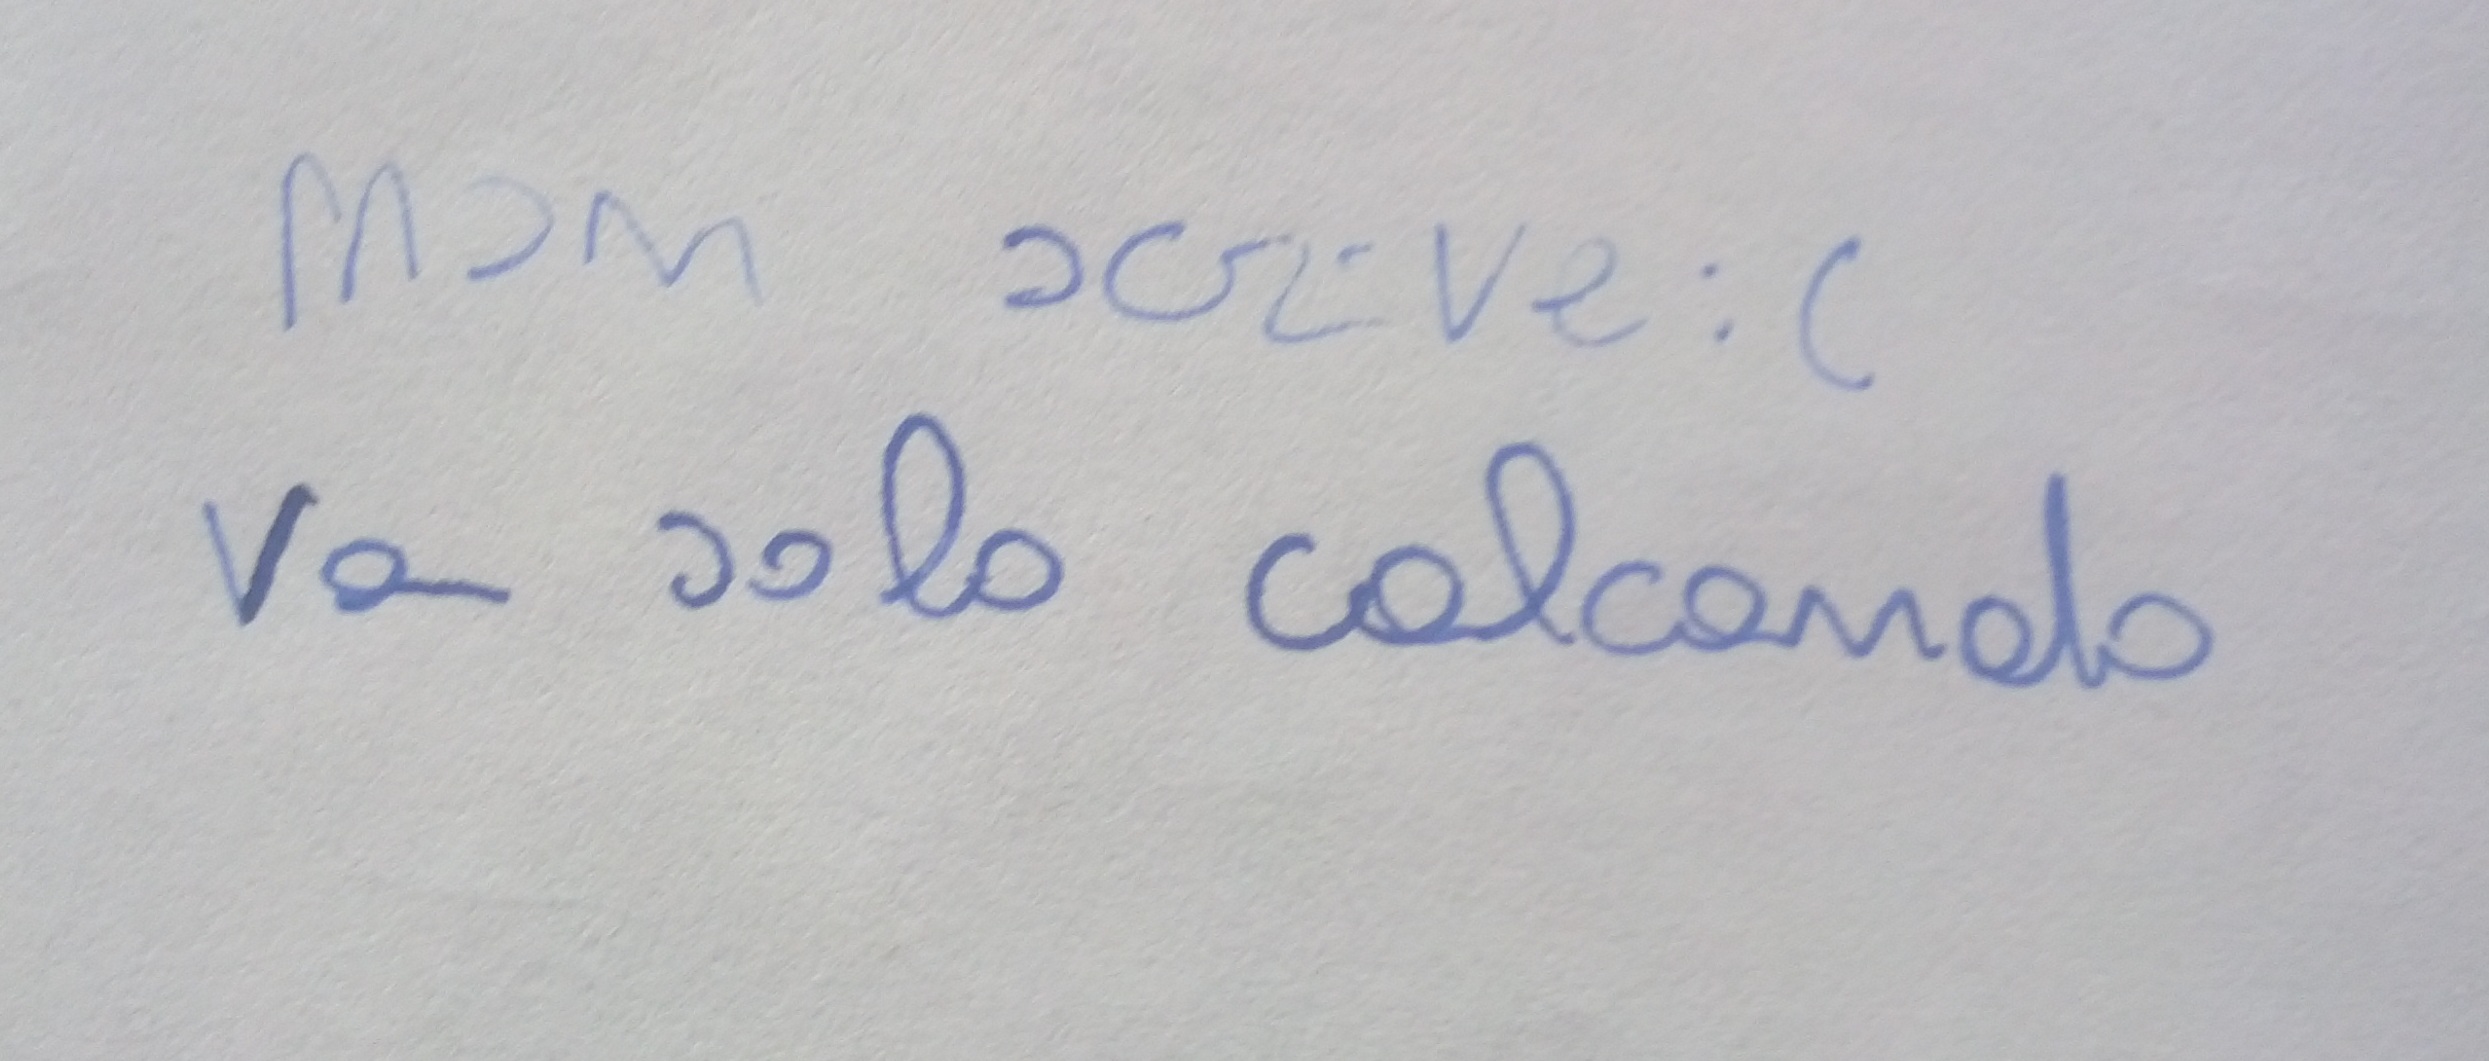 Non scrive :(
Va solo calcando